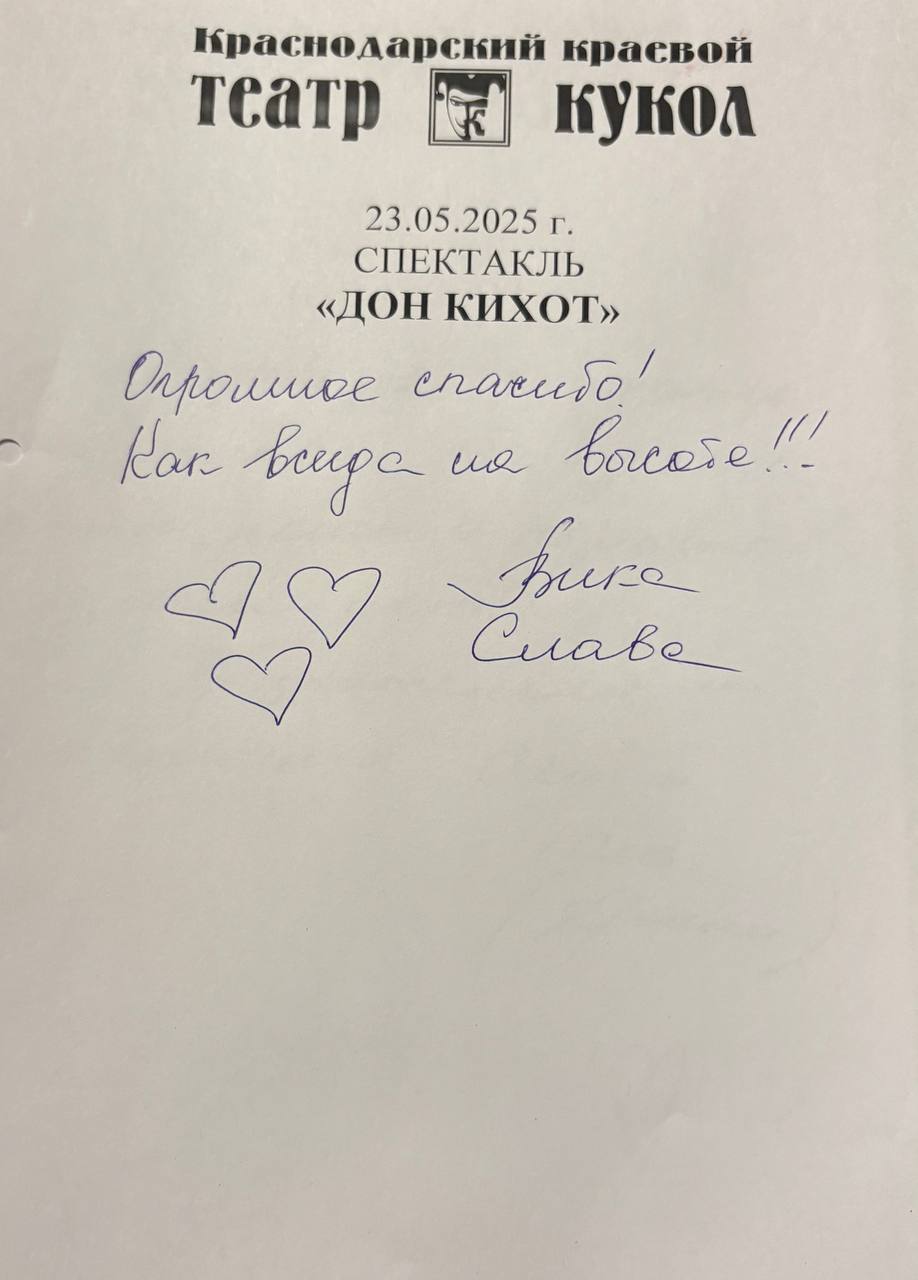 Краснодарский краевой
театр кукол
23.05.2025 г.
СПЕКТАКЛЬ
«ДОН КИХОТ»
Огромное спасибо!
Как всегда на высоте!!!
Вика
Слава